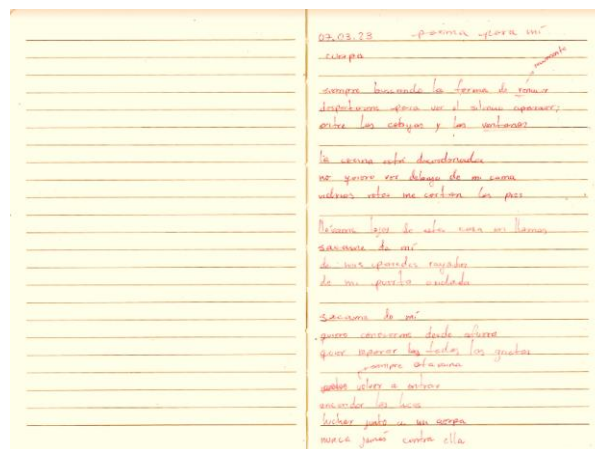 07.03.23 poema para mi
cuerpo
siempre buscando la forma de
momento
para ver el silencio aparecer;
entre las y las ventanas
la está abandonada
no quiero ver debajo de mi cama
vidrios rotos me cortan los pies
lejos de esta casa en llamas
sacame de mí
de mis paredes rayadas
de mi puerta oxidada
sacame de mí
quiero conocerme desde afuera
reparar las todas las grietas
siempre
volver a entrar
encender las luces
luchar junto a mi
nunca jamás contra ella